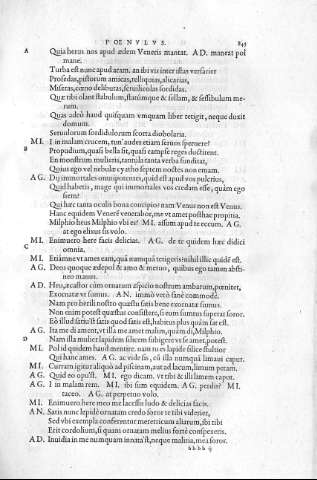 POENVLVS. 845
A Quia herus nos apud ædem Veneris mantat. AD. maneat pol
mane.
Turba est nunc apud aram. an ibi vis inter istas versarier
Prosedas, pistorum amicas, relliquias, alicarias,
Miseras, cœno delibutas, seruilicolas sordidas.
Quæ tibi olant stabulum, statúmque & sellam, & sessibulum me-
rum.
Quas adeò haud quisquam vnquam liber tetigit, neque duxit
domum.
Seruulorum sordidulorum scorta diobolaria.
MI. I in malam crucem, tun' audes etiam seruos spernere?
B Propudium, quasi bella sit, quasi eampse reges ductitent.
En monstrum mulieris, tantula tanta verba funditat,
Quoius ego vel nebulæ cyatho septem noctes non emam.
AG. Dij immortales omnipotentes, quid est apud vos pulcrius,
Quid habetis, mage qui immortales vos credam esse, quàm ego
siem?
Qui hæc tanta oculis bona concipio? nam Venus non est Venus.
Hanc equidem Venerē venerabor, me vt amet posthac propitia.
Milphio heus Milphio vbi es? MI. assum apud te eccum. AG.
at ego elixus sis volo.
MI. Enimuero here facis delicias. AG. de te quidem hæc didici
C omnia.
MI. Etiámne vt ames eam, quā nunquā tetigeris? nihil illuc quidē est.
AG. Deos quoque ædepol & amo & metuo, quibus ego tamen absti-
neo manus.
AD. Heu, ecastor cùm ornatum aspicio nostrum ambarum, pœnitet,
Exornatæ vt simus. AN. immò verò sanè commodè.
Nam pro herili nostro quæstu satis bene exornatæ sumus.
Non enim potest quæstus consistere, si eum sumtus superat soror.
Eò illud satiu'st satis quod satis est, habitu plus quàm sat est.
AG. Ita me di ament, vt illa me amet malim, quàm di, Milphio.
D Nam illa mulier lapidem silicem subigere vt se amet, potest.
MI. Pol id quidem haud mentire. nam tu es lapide silice stultior
Qui hanc ames. AG. ac vide sis, cū illa nunquā limaui caput.
MI. Curram igitur aliquò ad piscinam, aut ad lacum, limum petam.
AG. Quid eo opu'st. MI. ego dicam. vt tibi & illi limem caput.
AG. I in malam rem. MI. ibi sum equidem. AG. perdis? MI.
taceo. AG. at perpetuo volo.
MI. Enimuero here meo me lacessis ludo & delicias facis.
AN. Satis nunc lepidè ornatam credo soror te tibi viderier,
Sed vbi exempla conferentur meretricum aliarum, ibi tibi
Erit cordolium, si quam ornatam melius fortè conspexeris.
AD. Inuidia in me nunquam innata'st, neque malitia, mea soror.
bbbb ij